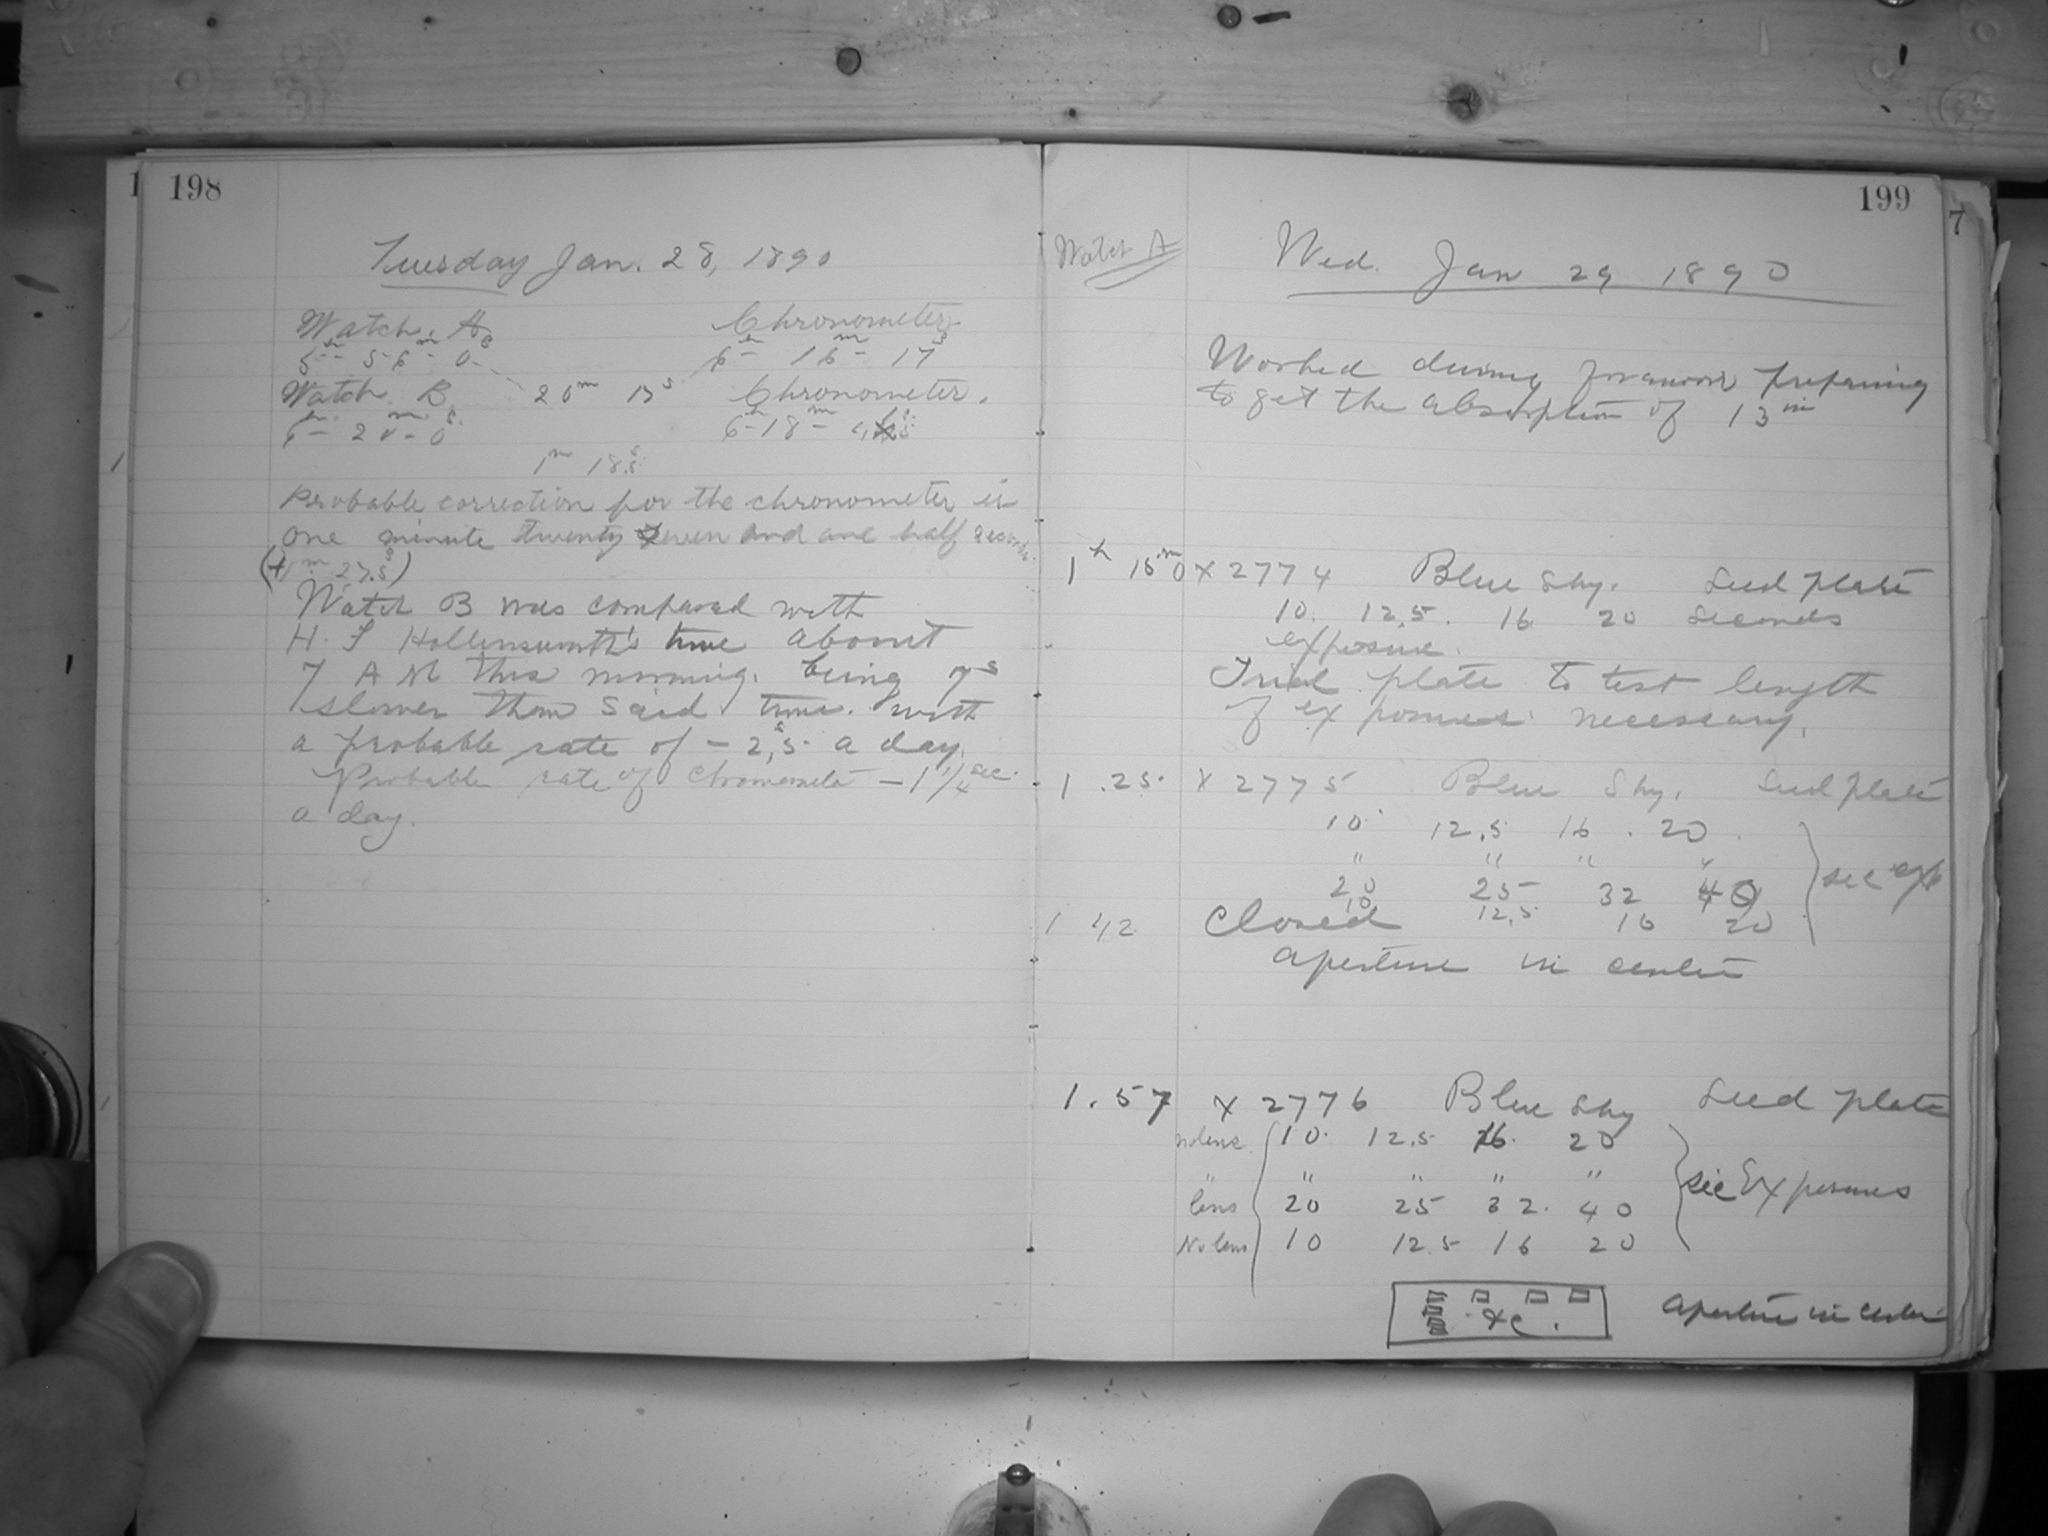 198
Tuesday Jan. 28, 1890
Watch A Chronometer
5h - 56m - 0s 6h - 16m - 17s
Watch B 20m 17s Chronometer.
6h - 20m - 0s 6h - 18m -
1m 18.5s
Probable correction for the chronometer is
one minute twenty seven and one half seconds
(+1m 27.5s)
Watch B was compared with
H. F Hollensworth's time about
7 A M this morning. being 7s
slower than said time. with
a probable rate of - 2.5s a day.
Probable rate of Chronometer - 1 1/4 sec.
a day.
199
Watch A
Wed. Jan 29 1890
Worked during forenoon preparing
to get the absorption of 13 in
1h 15m 0 X 2774 Blue Sky. Seed plate
10. 12.5. 16 20 Seconds
exposure.
Trial plate to test length
of exposures necessary.
1 .25. X 2775 Blue Sky. Seed plate
10 12.5 16 . 20
" " " "
20 25 32 40 sec exp
1 42 Closed 10 12.5 16 20
aperture in center
1.57 X 2776 Blue Sky Seed plate
no lens 10. 12.5 16. 20
" " " " "
lens 20 25 32. 40 sec Exposures
No lens 10 12.5 16 20
&c. aperture in center